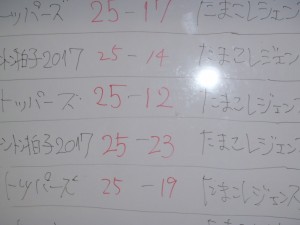 トッパーズ 25-17 たまこレジェンズ
ント拍子2017 25-14 たまこレジェン
トッパーズ 25-12 たまこレジェン
ント拍子2017 25-23 たまこレジェン
トッパーズ 25-19 たまこレジェンズ